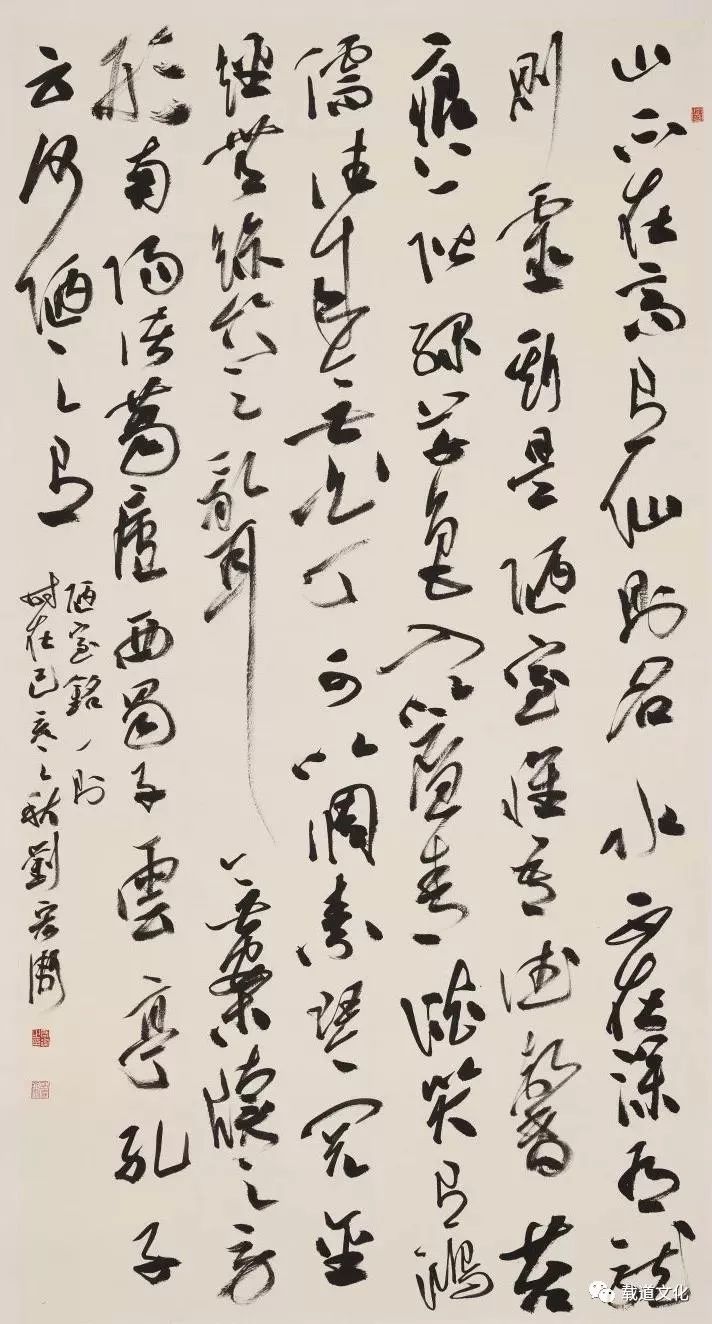 山不在高有仙則名水不在深有龍
則靈斯是陋室惟吾德馨苔
痕上階綠草色入簾青談笑有鴻
儒往來無白丁可以調素琴閱金
經無絲竹之亂耳無案牘之勞
形南陽諸葛廬西蜀子雲亭孔子
云何陋之有
陋室銘一則
时在己亥之秋劉
载道文化